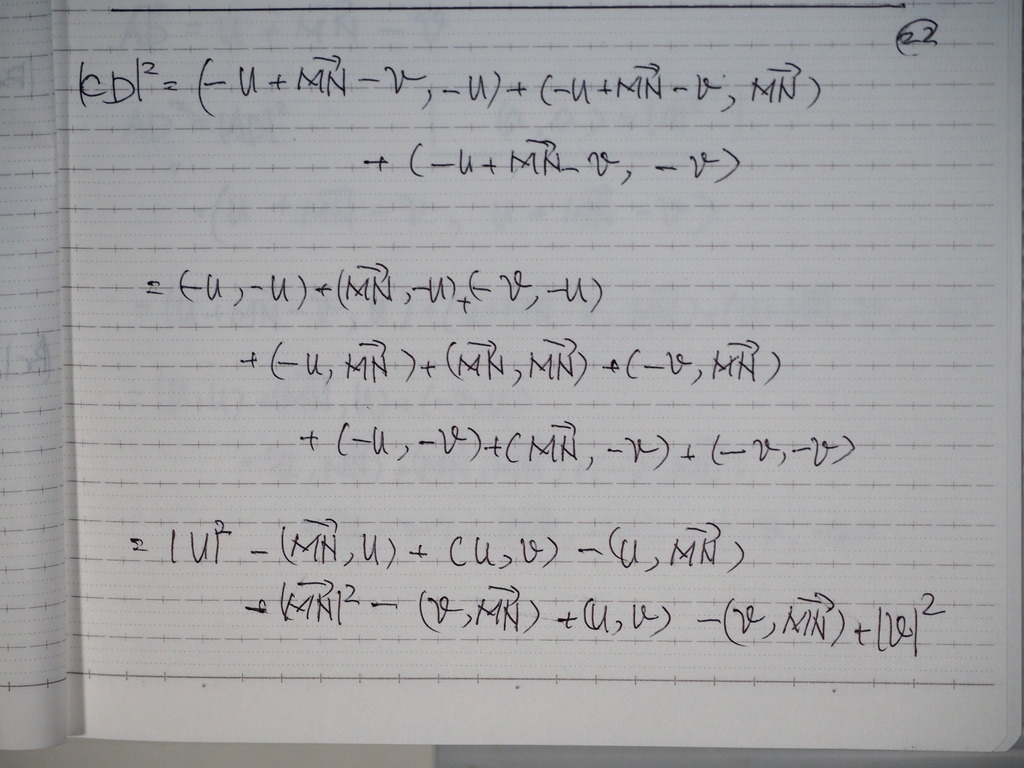 22
|CD|² = (-u + \overrightarrow{MN} - v, -u) + (-u + \overrightarrow{MN} - v, \overrightarrow{MN})
+ (-u + \overrightarrow{MN} - v, -v)
= (-u, -u) + (\overrightarrow{MN}, -u) + (-v, -u)
+ (-u, \overrightarrow{MN}) + (\overrightarrow{MN}, \overrightarrow{MN}) + (-v, \overrightarrow{MN})
+ (-u, -v) + (\overrightarrow{MN}, -v) + (-v, -v)
= |u|² - (\overrightarrow{MN}, u) + (u, v) - (u, \overrightarrow{MN})
+ |\overrightarrow{MN}|² - (v, \overrightarrow{MN}) + (u, v) - (v, \overrightarrow{MN}) + |v|²